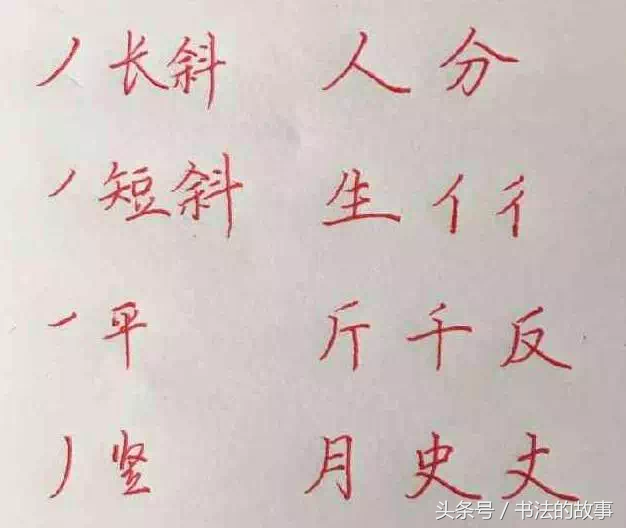 丿长斜 人 分
丿短斜 生 亻 彳
㇀平 斤 千 反
丿竖 月 史 丈
头条号 / 书法的故事